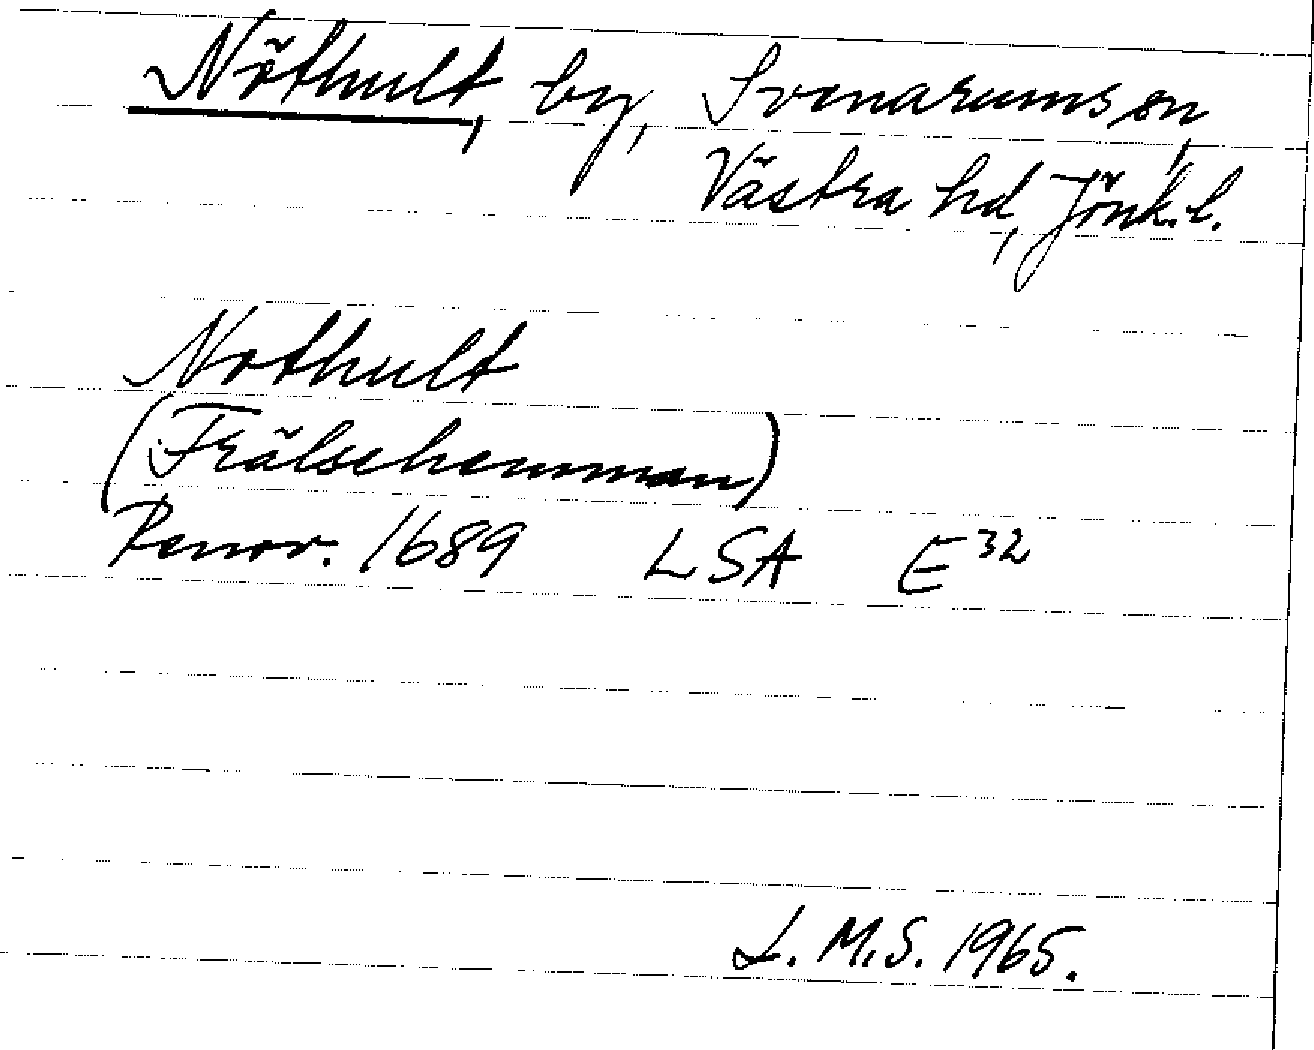 Nöthult, by, Svenarums sn,
Västra hd, Jönk. l.
Nothult
(Frälsehemman)
Renov. 1689 LSA E32
L. M.S. 1965.